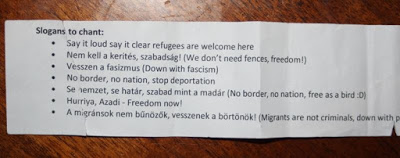 Slogans to chant:
• Say it loud say it clear refugees are welcome here
• Nem kell a kerítés, szabadság! (We don't need fences, freedom!)
• Vesszen a fasizmus (Down with fascism)
• No border, no nation, stop deportation
• Se nemzet, se határ, szabad mint a madár (No border, no nation, free as a bird :D)
• Hurriya, Azadi - Freedom now!
• A migránsok nem bűnözők, vesszenek a börtönök! (Migrants are not criminals, down with p